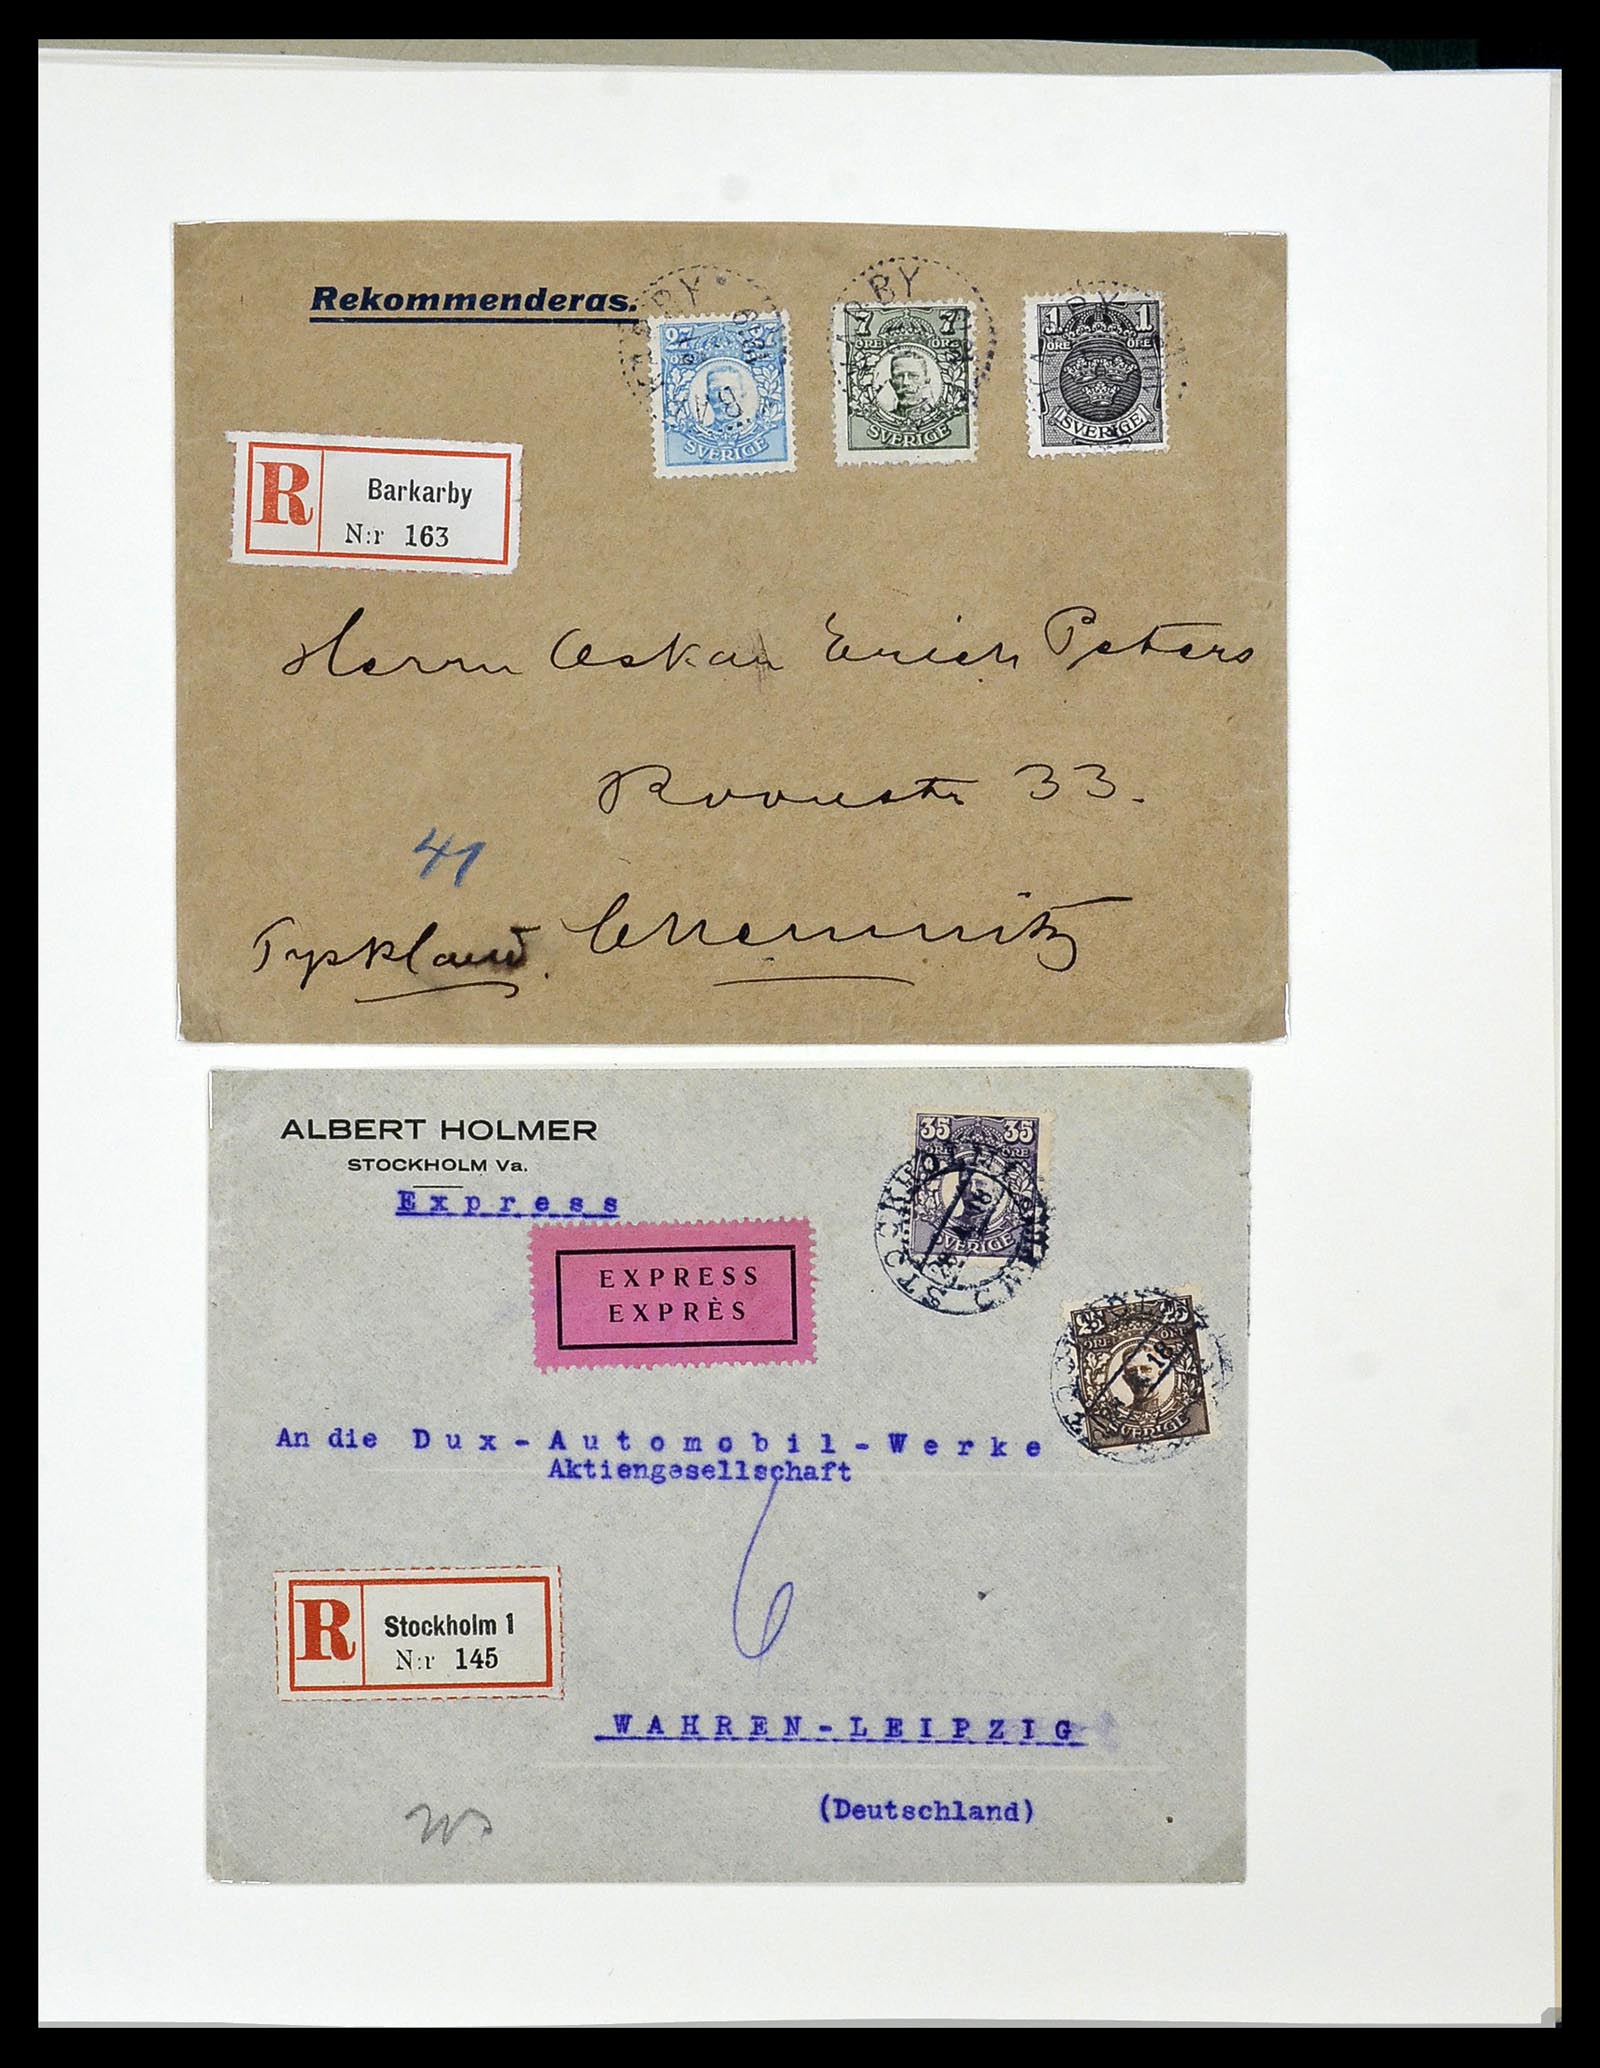 Rekommenderas.
27 27
ÖRE
SVERIGE
7 7
ÖRE ÖRE
SVERIGE
1 1
ÖRE ÖRE
SVERIGE
R Barkarby
N:r 163
Herrn Oskar Erich Peters
Roonstr 33.
41
Tyskland. Chemnitz
ALBERT HOLMER
STOCKHOLM Va.
Express
EXPRESS
EXPRÈS
35 35
ÖRE ÖRE
SVERIGE
STOCKHOLM
25 25
ÖRE ÖRE
SVERIGE
An die Dux-Automobil-Werke
Aktiengesellschaft
6
R Stockholm 1
N:r 145
WAHREN-LEIPZIG
(Deutschland)